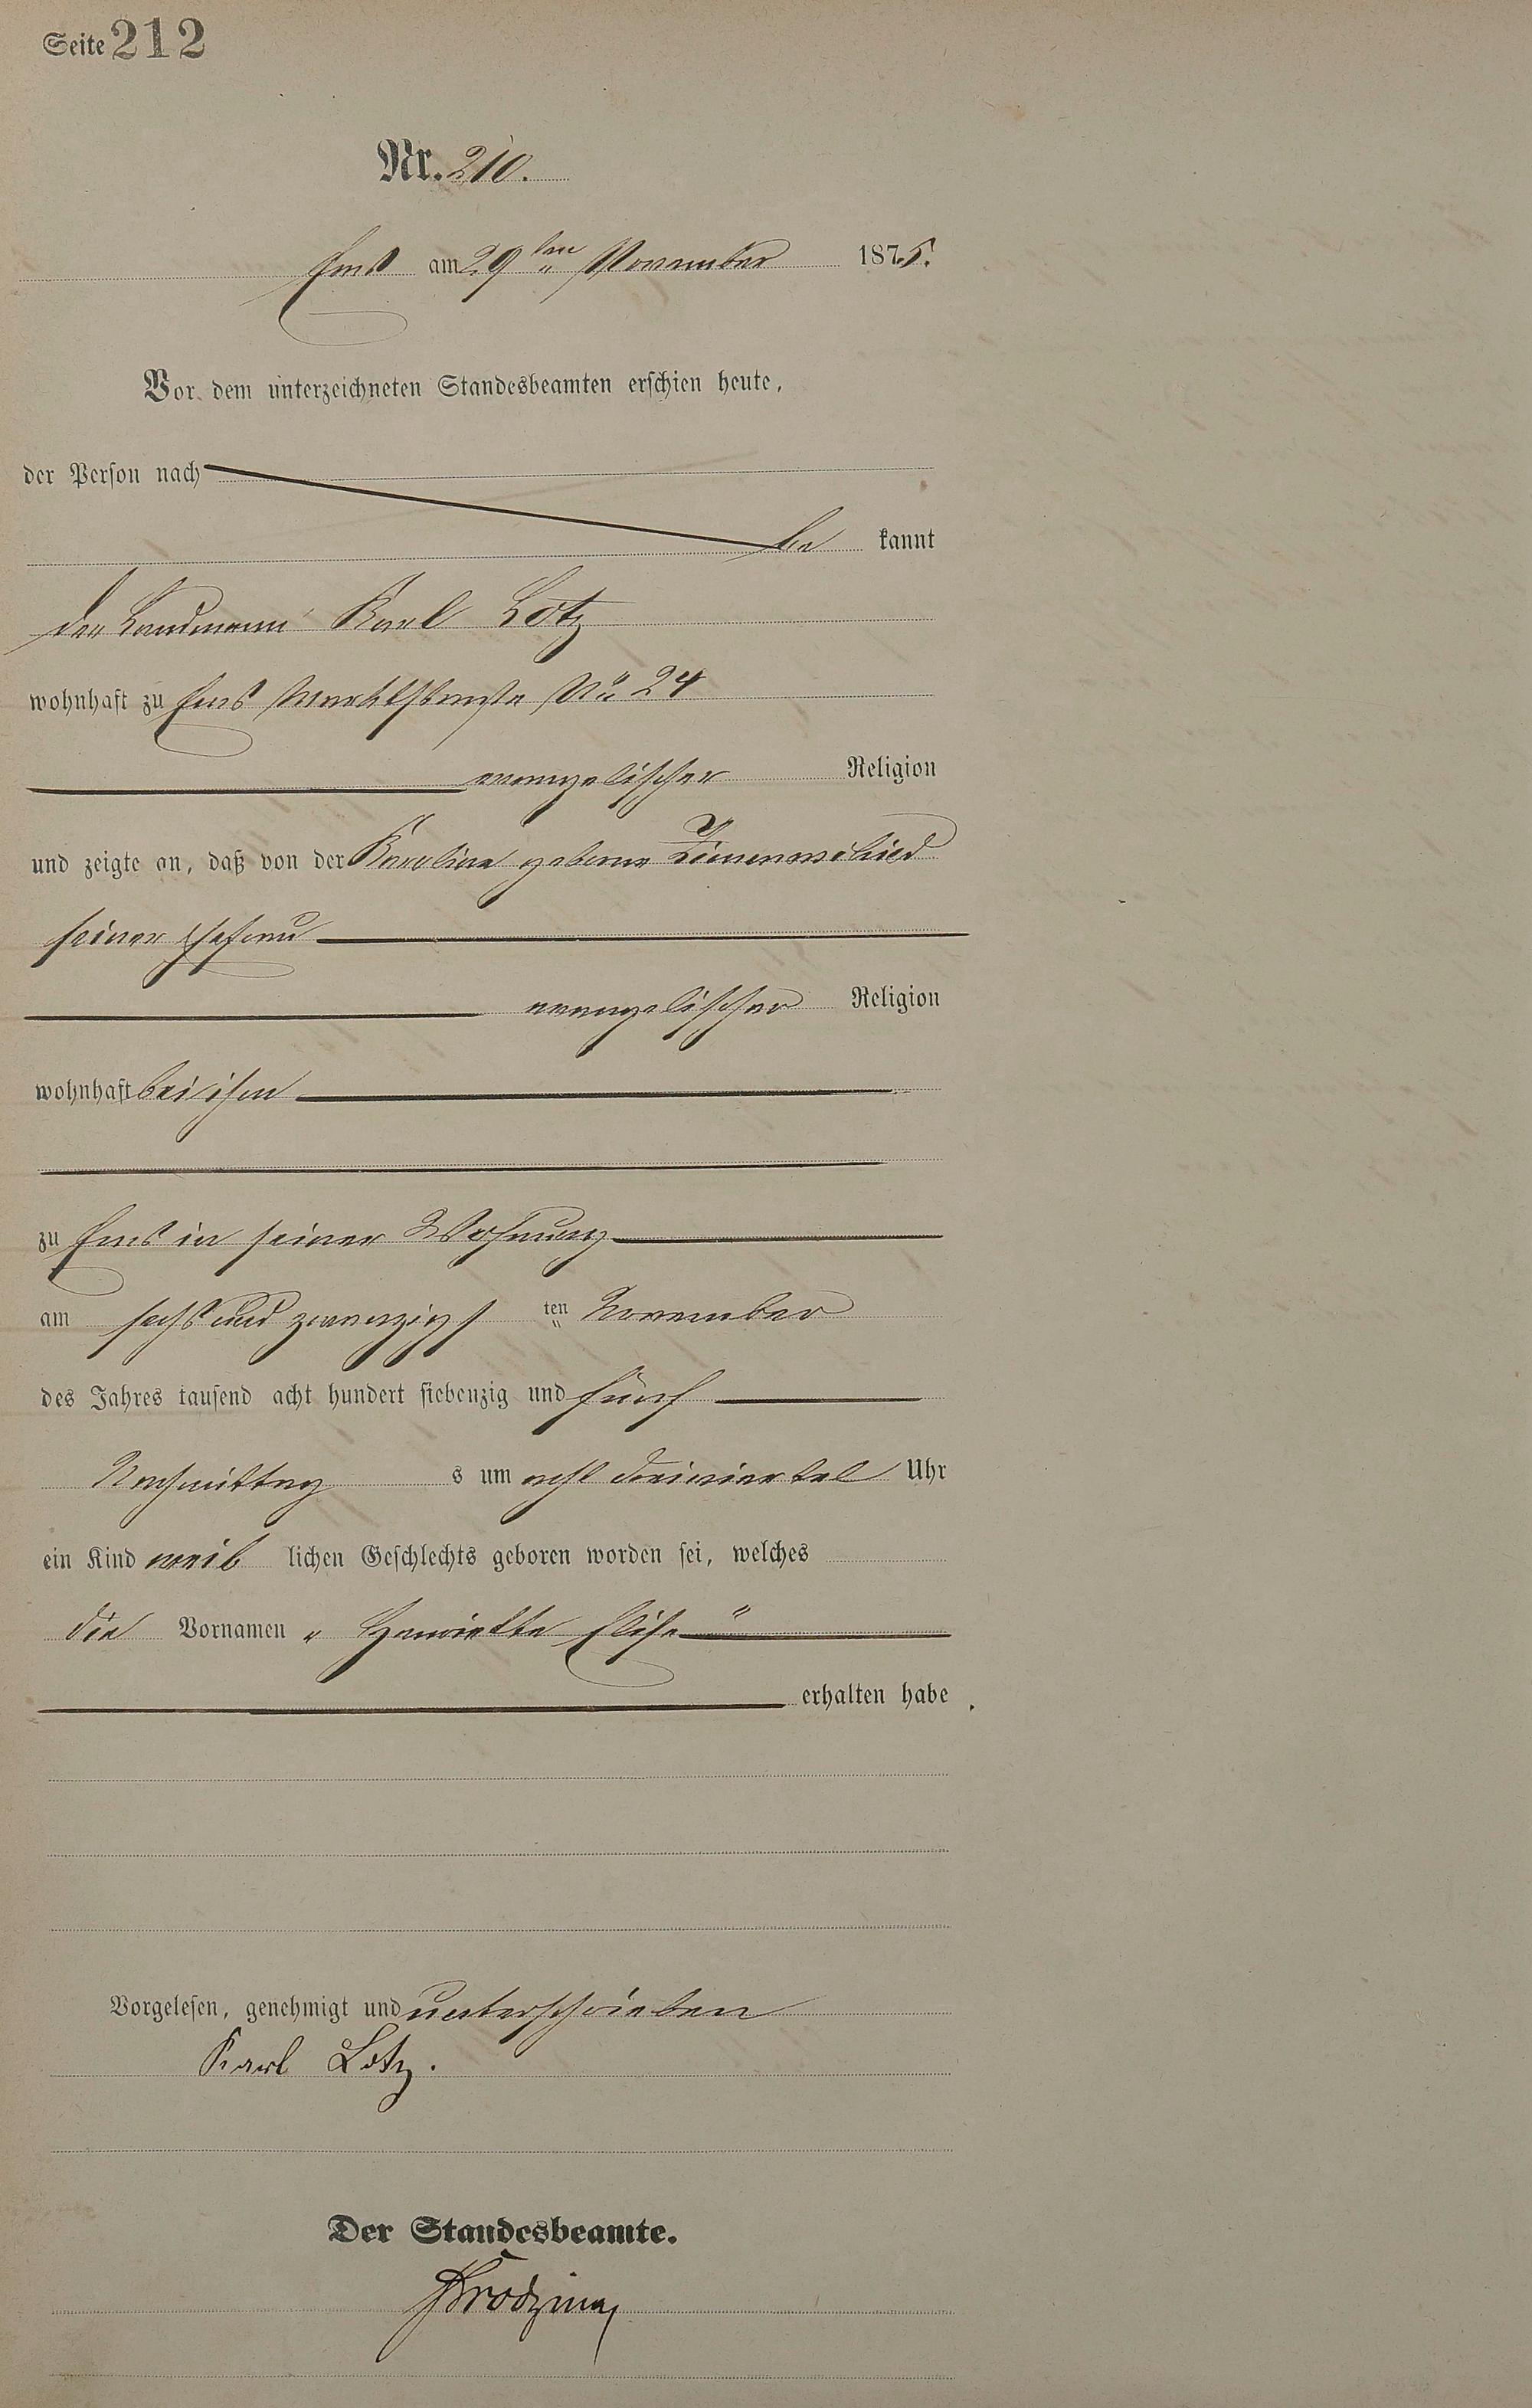 Seite 212
Nr. 210.
Ems am 29ten November 1875.
Vor dem unterzeichneten Standesbeamten erschien heute,
der Person nach
be kannt
der Landmann Karl Lotz
wohnhaft zu Ems Marktstraße No 24
evangelischer Religion
und zeigte an, daß von der Karoline geborne
seiner Ehefrau
evangelischer Religion
wohnhaft bei ihm
zu Ems in seiner Wohnung
am sechs und zwanzigsten November
des Jahres tausend acht hundert siebenzig und fünf
Nachmittags um acht dreiviertel Uhr
ein Kind weiblichen Geschlechts geboren worden sei, welches
die Vornamen „Henriette Elise“
erhalten habe.
Vorgelesen, genehmigt und unterschrieben
Karl Lotz.
Der Standesbeamte.